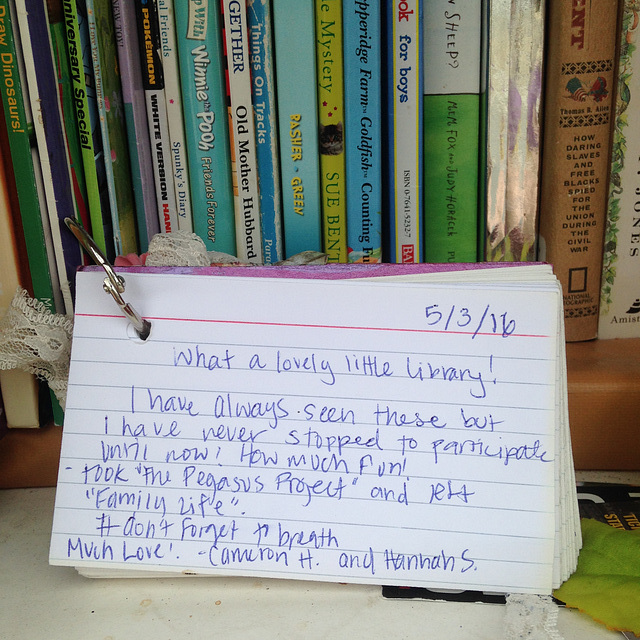 Draw Dinosaurs!
niversary Special
POKÉMON
WHITE VERSION HAN
al Friends
Spunky's Diary
p With Winnie the Pooh Friends Forever
GETHER Old Mother Hubbard
Things On Tracks
RASHER - GREEN
e Mystery SUE BENT
epperidge Farm Goldfish Counting Fu
ok for boys
ISBN 0-7661-5232-7
SHEEP?
MEM FOX and JUDY HORACEK
ENT
Thomas B. Allen
HOW
DARING
SLAVES
AND
FREE
BLACKS
SPIED
FOR
THE
UNION
DURING
THE
CIVIL
WAR
NATIONAL
GEOGRAPHIC
Amist
5/3/16
What a lovely little library!
I have always seen these but
i have never stopped to participate
until now! How much fun!
- took "The Pegasus Project" and left
"Family Life".
# don't forget to breath
Much Love! - Cameron H. and Hannah S.